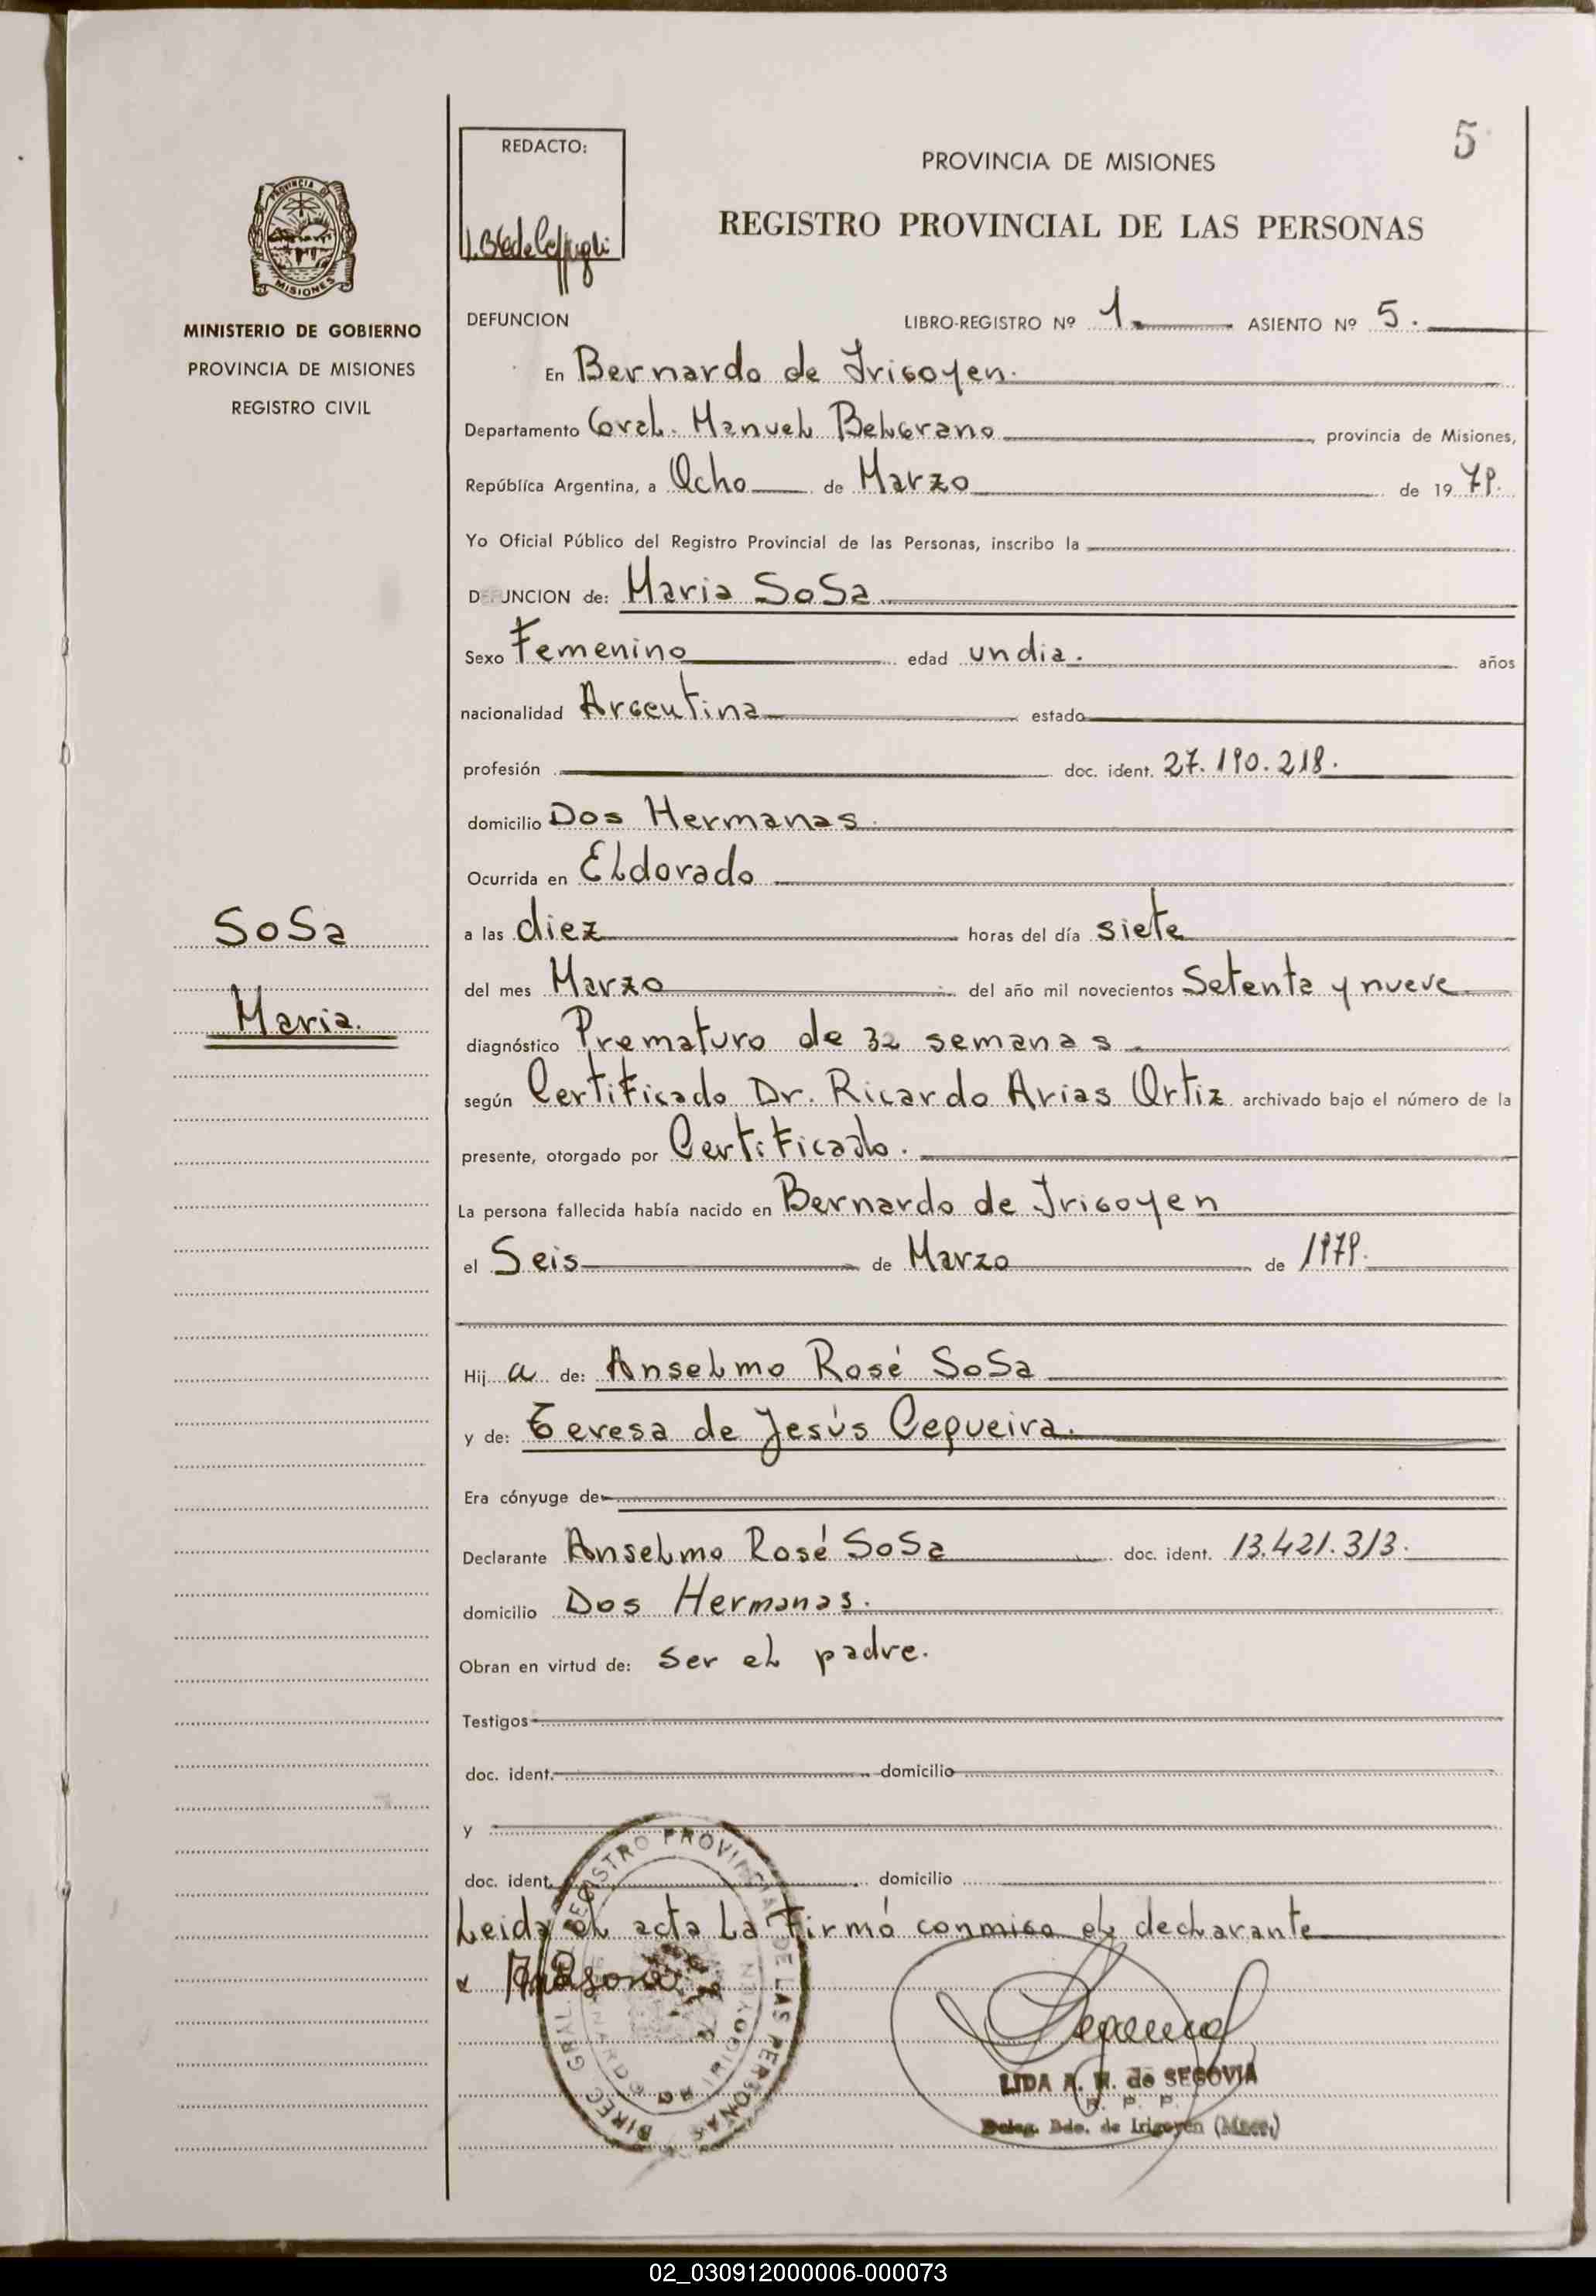 5
REDACTO:
PROVINCIA DE MISIONES
REGISTRO PROVINCIAL DE LAS PERSONAS
PROVINCIA DE
MISIONES
MINISTERIO DE GOBIERNO
PROVINCIA DE MISIONES
REGISTRO CIVIL
DEFUNCION LIBRO-REGISTRO Nº 1 ASIENTO Nº 5.
En Bernardo de Irigoyen.
Departamento Gral. Manuel Belgrano provincia de Misiones,
República Argentina, a Ocho de Marzo de 1979.
Yo Oficial Público del Registro Provincial de las Personas, inscribo la
DEFUNCION de: Maria Sosa
Sexo Femenino edad un dia. años
nacionalidad Argentina estado
profesión doc. ident. 27.190.218.
domicilio Dos Hermanas.
Ocurrida en Eldorado
Sosa
a las diez horas del día siete
del mes Marzo del año mil novecientos Setenta y nueve
Maria.
diagnóstico Prematuro de 32 semanas
según Certificado Dr. Ricardo Arias Ortiz archivado bajo el número de la
presente, otorgado por Certificado.
La persona fallecida había nacido en Bernardo de Irigoyen
el Seis de Marzo de 1979.
Hij a de: Anselmo Rosé Sosa
y de: Teresa de Jesús Cequeira.
Era cónyuge de
Declarante Anselmo Rosé Sosa doc. ident. 13.421.313.
domicilio Dos Hermanas.
Obran en virtud de: Ser el padre.
Testigos
doc. ident. domicilio
y
doc. ident. domicilio
Leida el acta la firmó conmigo el declarante
DIREC. GRAL. REGISTRO PROVINCIAL DE LAS PERSONAS
BERNARDO DE IRIGOYEN
LIDA A. N. de SEGOVIA
R. P. P.
Deleg. Bdo. de Irigoyen (Mnes.)
02_030912000006-000073